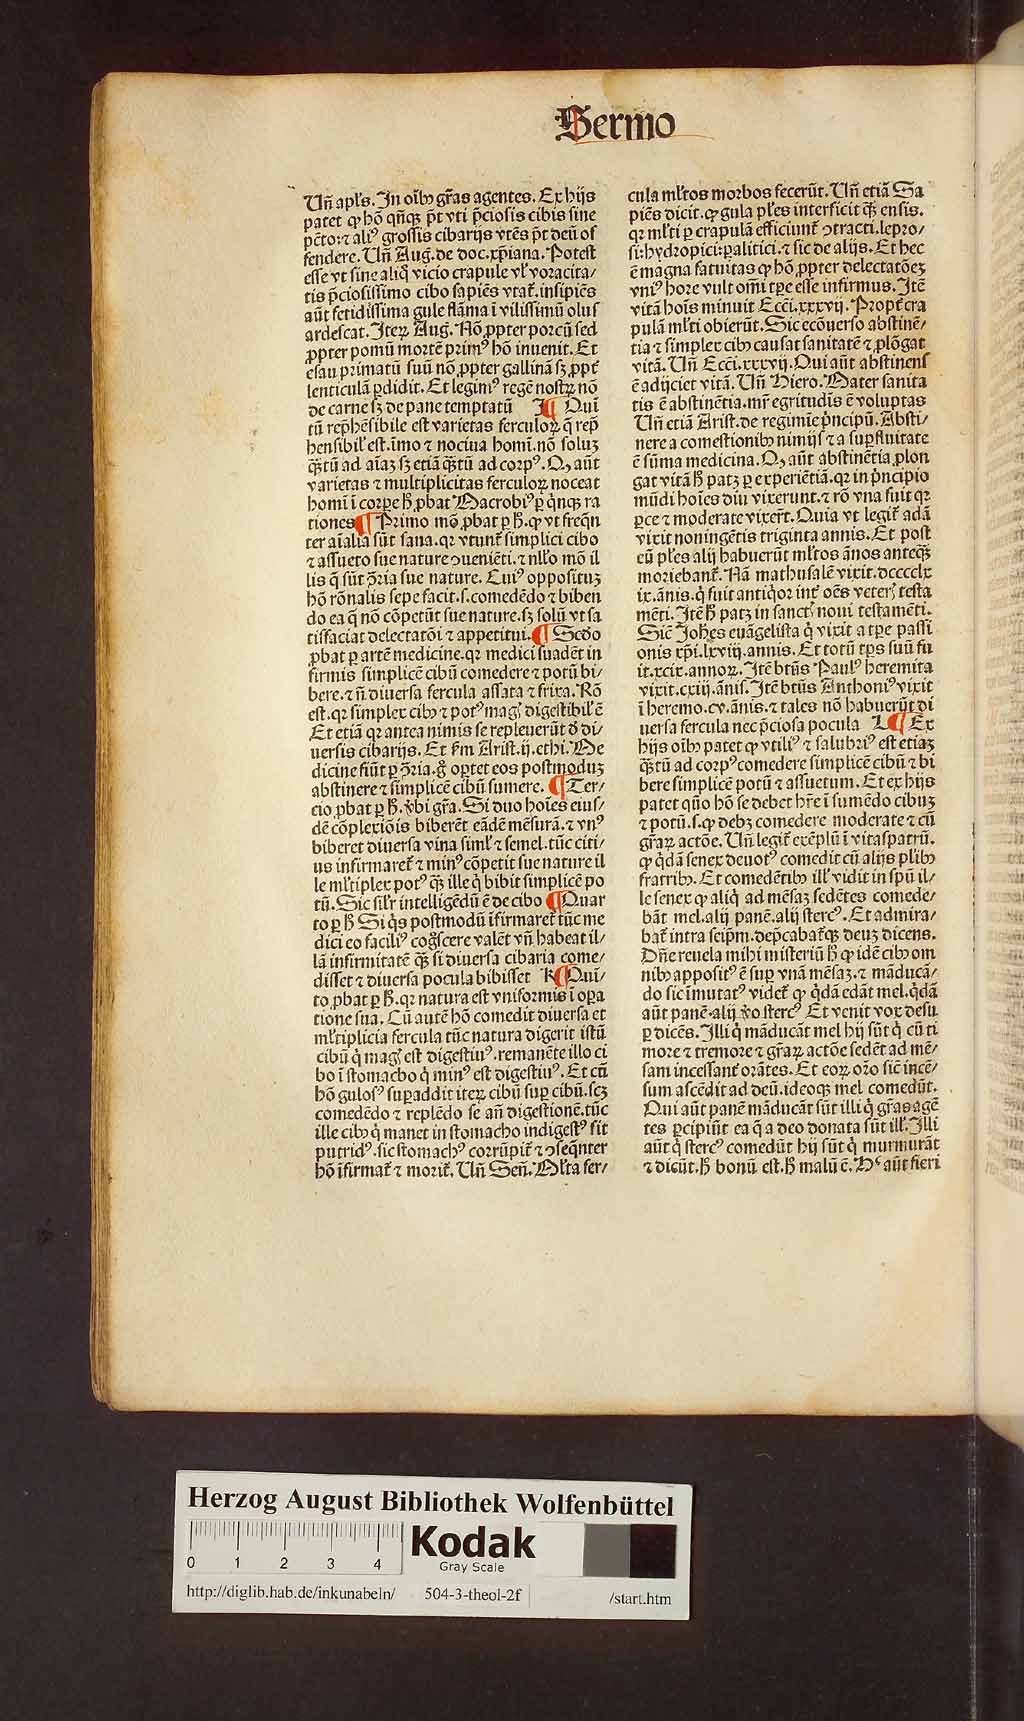 Sermo
Uñ apl's. In oĩb⁹ gr̃as agentes. Ex hijs
patet ꝙ hõ qñqȝ p̃t vti p̃ciosis cibis sine
pc̃to: ⁊ ali⁹ grossis cibarijs vtẽs p̃t deũ of
fendere. Uñ Aug. de doc. xp̃iana. Potest
esse vt sine aliq̃ vicio crapule vľ voracita/
tis p̃ciosissimo cibo sapiẽs vtat̃. insipiẽs
aũt fetidissima gule flãma ĩ vilissimũ olus
ardescat. Iteꝝ Aug. Nõ ꝓpter porcũ sed
ꝓpter pomũ mortẽ prim⁹ hõ inuenit. Et
esau primatũ suũ nõ ꝓpter gallinã sȝ ꝓpt̃
lenticulã ꝑdidit. Et legim⁹ regẽ nostꝝ nõ
de carne sȝ de pane temptatũ I ¶ Qui
tũ rep̃hẽsibile est varietas ferculoꝝ q̃ rep̃
hensibil' est. imo ⁊ nociua homĩ. nõ soluȝ
qȝ̃tũ ad aĩaȝ sȝ etiã qȝ̃tũ ad corp⁹. Qȝ aũt
varietas ⁊ multiplicitas ferculoꝝ noceat
homĩ ĩ corpe h̃ ꝓbat Macrobi⁹ ꝑ q̃nqȝ ra
tiones ¶ Primo mõ ꝓbat ꝑ h̃. ꝙ vt freq̃n
ter aĩalia sũt sana. qr vtunt̃ simplici cibo
⁊ assueto sue nature ↄueniẽti. ⁊ nľlo mõ il
lis q̃ sũt ↄ̃ria sue nature. Cui⁹ oppositũ
hõ rõnalis sepe facit. s. comedẽdo ⁊ biben
do ea q̃ nõ cõpetũt sue nature. sȝ solũ vt sa
tisfaciat delectatõi ⁊ appetitui. ¶ Scd̃o
ꝓbat ꝑ artẽ medicine. qr medici suadẽt in
firmis simplicẽ cibũ comedere ⁊ potũ bi/
bere. ⁊ ñ diuersa fercula assata ⁊ frixa. Rõ
est. qr simplex cib⁹ ⁊ pot⁹ mag̃ digestibil' ẽ
Et etiã qr antea nimis se repleuerũt d̃ di/
uersis cibarijs. Et s̃m Arist. ij. ethi. Me
dicine fiũt ꝑ ↄ̃ria. g̊ oꝑtet eos postmoduȝ
abstinere ⁊ simplicẽ cibũ sumere. ¶ Ter/
cio ꝓbat ꝑ h̃. vbi gr̃a. Si duo hoĩes eius/
dẽ cõplexiõis biberẽt eãdẽ mẽsurã. ⁊ vn⁹
biberet diuersa vina siml' ⁊ semel. tũc citi/
us infirmaret̃ ⁊ min⁹ cõpetit sue nature il
le ml'tiplex pot⁹ qȝ̃ ille q̃ bibit simplicẽ po
tũ. Sic sil'r intelligẽdũ ẽ de cibo ¶ Quar
to ꝑ h̃ Si q̃s postmodũ ĩfirmaret̃ tũc me
dici eo facili⁹ cog̃scere valẽt vñ habeat il/
lã infirmitatẽ qȝ̃ si diuersa cibaria come/
disset ⁊ diuersa pocula bibisset K ¶ Qui/
to ꝓbat ꝑ h̃. qr natura est vniformis ĩ oꝑa
tione sua. Cũ autẽ hõ comedit diuersa et
ml'tiplicia fercula tũc natura digerit istũ
cibũ q̃ mag̃ est digestiu⁹. remanẽte illo ci
bo ĩ stomacho q̃ min⁹ est digestiu⁹. Et cũ
hõ gulos⁹ suꝑaddit iteꝝ cibũ suꝑ cibũ. scȝ
comedẽdo ⁊ replẽdo se añ digestionẽ. tũc
ille cib⁹ q̃ manet in stomacho indigest⁹ fit
putrid⁹. sic stomach⁹ corrũpit̃ ⁊ ↄseq̃nter
hõ ĩfirmat̃ ⁊ morit̃. Uñ Señ. Ml'ta fer/
cula ml'tos morbos fecerũt. Uñ etiã Sa
piẽs dicit. ꝙ gula pl'es interficit qȝ̃ ensis.
qr ml'ti ꝑ crapulã efficiunt̃ ↄtracti. lepro/
si: hydropici: ꝑalitici. ⁊ sic de alijs. Et hec
ẽ magna fatuitas ꝙ hõ ꝓpter delectatõeȝ
vni⁹ hore vult om̃i tꝑe esse infirmus. Itẽ
vitã hoĩs minuit Ecc̃i. xxxvij. Propt̃ cra
pulã ml'ti obierũt. Sic ecõuerso abstinẽ/
tia ⁊ simplex cib⁹ causat sanitatẽ ⁊ ꝓlõgat
vitã. Uñ Ecc̃i. xxxvij. Qui aũt abstinens
ẽ adijciet vitã. Uñ Hiero. Mater sanita
tis ẽ abstinẽtia. mr̃ egritudĩs ẽ voluptas
Uñ etiã Arist. de regimĩe p̃ncipũ. Absti/
nere a comestionib⁹ nimijs ⁊ a suꝑfluitate
ẽ sũma medicina. Qȝ aũt abstinẽtia ꝓlon
gat vitã h̃ patȝ ꝑ experiẽtiã. qr in p̃ncipio
mũdi hoĩes diu vixerunt. ⁊ rõ vna fuit qr
ꝑce ⁊ moderate vixer̃t. Quia vt legit̃ adã
vixit noningẽtis triginta annis. Et post
eũ pl'es alij habuerũt ml'tos ãnos anteqȝ̃
moriebant̃. Nã mathusalẽ vixit. dcccclx
ix. ãnis. q̃ fuit antiq̃or int̃ oẽs veter̃ testa
mẽti. Itẽ h̃ patȝ in sanct̃ noui testamẽti.
Sic̃ Joh̃es euãgelista q̃ vixit a tꝑe passi
onis xp̃i. lxviij. annis. Et totũ tp̃s suũ fu
it. xcix. annoꝝ. Itẽ bt̃us Paul⁹ heremita
vixit. cxiij. ãnis. Itẽ bt̃us Anthoni⁹ vixit
ĩ heremo. cv. ãnis. ⁊ tales nõ habuerũt di
uersa fercula nec p̃ciosa pocula L ¶ Ex
hijs oĩb⁹ patet ꝙ vtili⁹ ⁊ salubri⁹ est etiaȝ
qȝ̃tũ ad corp⁹ comedere simplicẽ cibũ ⁊ bi
bere simplicẽ potũ ⁊ assuetum. Et ex hijs
patet quõ hõ se debet hr̃e ĩ sumẽdo cibuȝ
⁊ potũ. s. ꝙ debȝ comedere moderate ⁊ cũ
gr̃aꝝ actõe. Uñ legit̃ exẽplũ ĩ vitaspatrũ.
ꝙ q̃dã senex deuot⁹ comedit cũ alijs pl'ib⁹
fratrib⁹. Et comedẽtib⁹ ill' vidit in sp̃u il/
le senex ꝙ aliq̃ ad mẽsaȝ sedẽtes comede/
bãt mel. alij panẽ. alij sterc⁹. Et admira/
bat̃ intra seip̃m. dep̃cabat̃qȝ deuȝ dicens.
Dñe reuela mihi misteriũ h̃ ꝙ idẽ cib⁹ om
nib⁹ apposit⁹ ẽ suꝑ vnã mẽsaȝ. ⁊ mãducã/
do sic imutat⁹ videt̃ ꝙ q̃dã edãt mel. q̃dã
aũt panẽ. alij vo sterc⁹ Et venit vox desu
ꝑ dicẽs. Illi q̃ mãducãt mel hij sũt q̃ cũ ti
more ⁊ tremore ⁊ gr̃aꝝ actõe sedẽt ad mẽ/
sam incessant̃ orãtes. Et eoꝝ or̃o sic̃ incẽ/
sum ascẽdit ad deũ. ideoqȝ mel comedũt.
Qui aũt panẽ mãducãt sũt illi q̃ gr̃as agẽ
tes ꝑcipiũt ea q̃ a deo donata sũt ill'. Illi
aũt q̃ sterc⁹ comedũt hij sũt q̃ murmurãt
⁊ dicũt. h̃ bonũ est. h̃ malũ ẽ. H⁹ aũt fieri
Herzog August Bibliothek Wolfenbüttel
0 1 2 3 4
Kodak
Gray Scale
http://diglib.hab.de/inkunabeln/ 504-3-theol-2f /start.htm